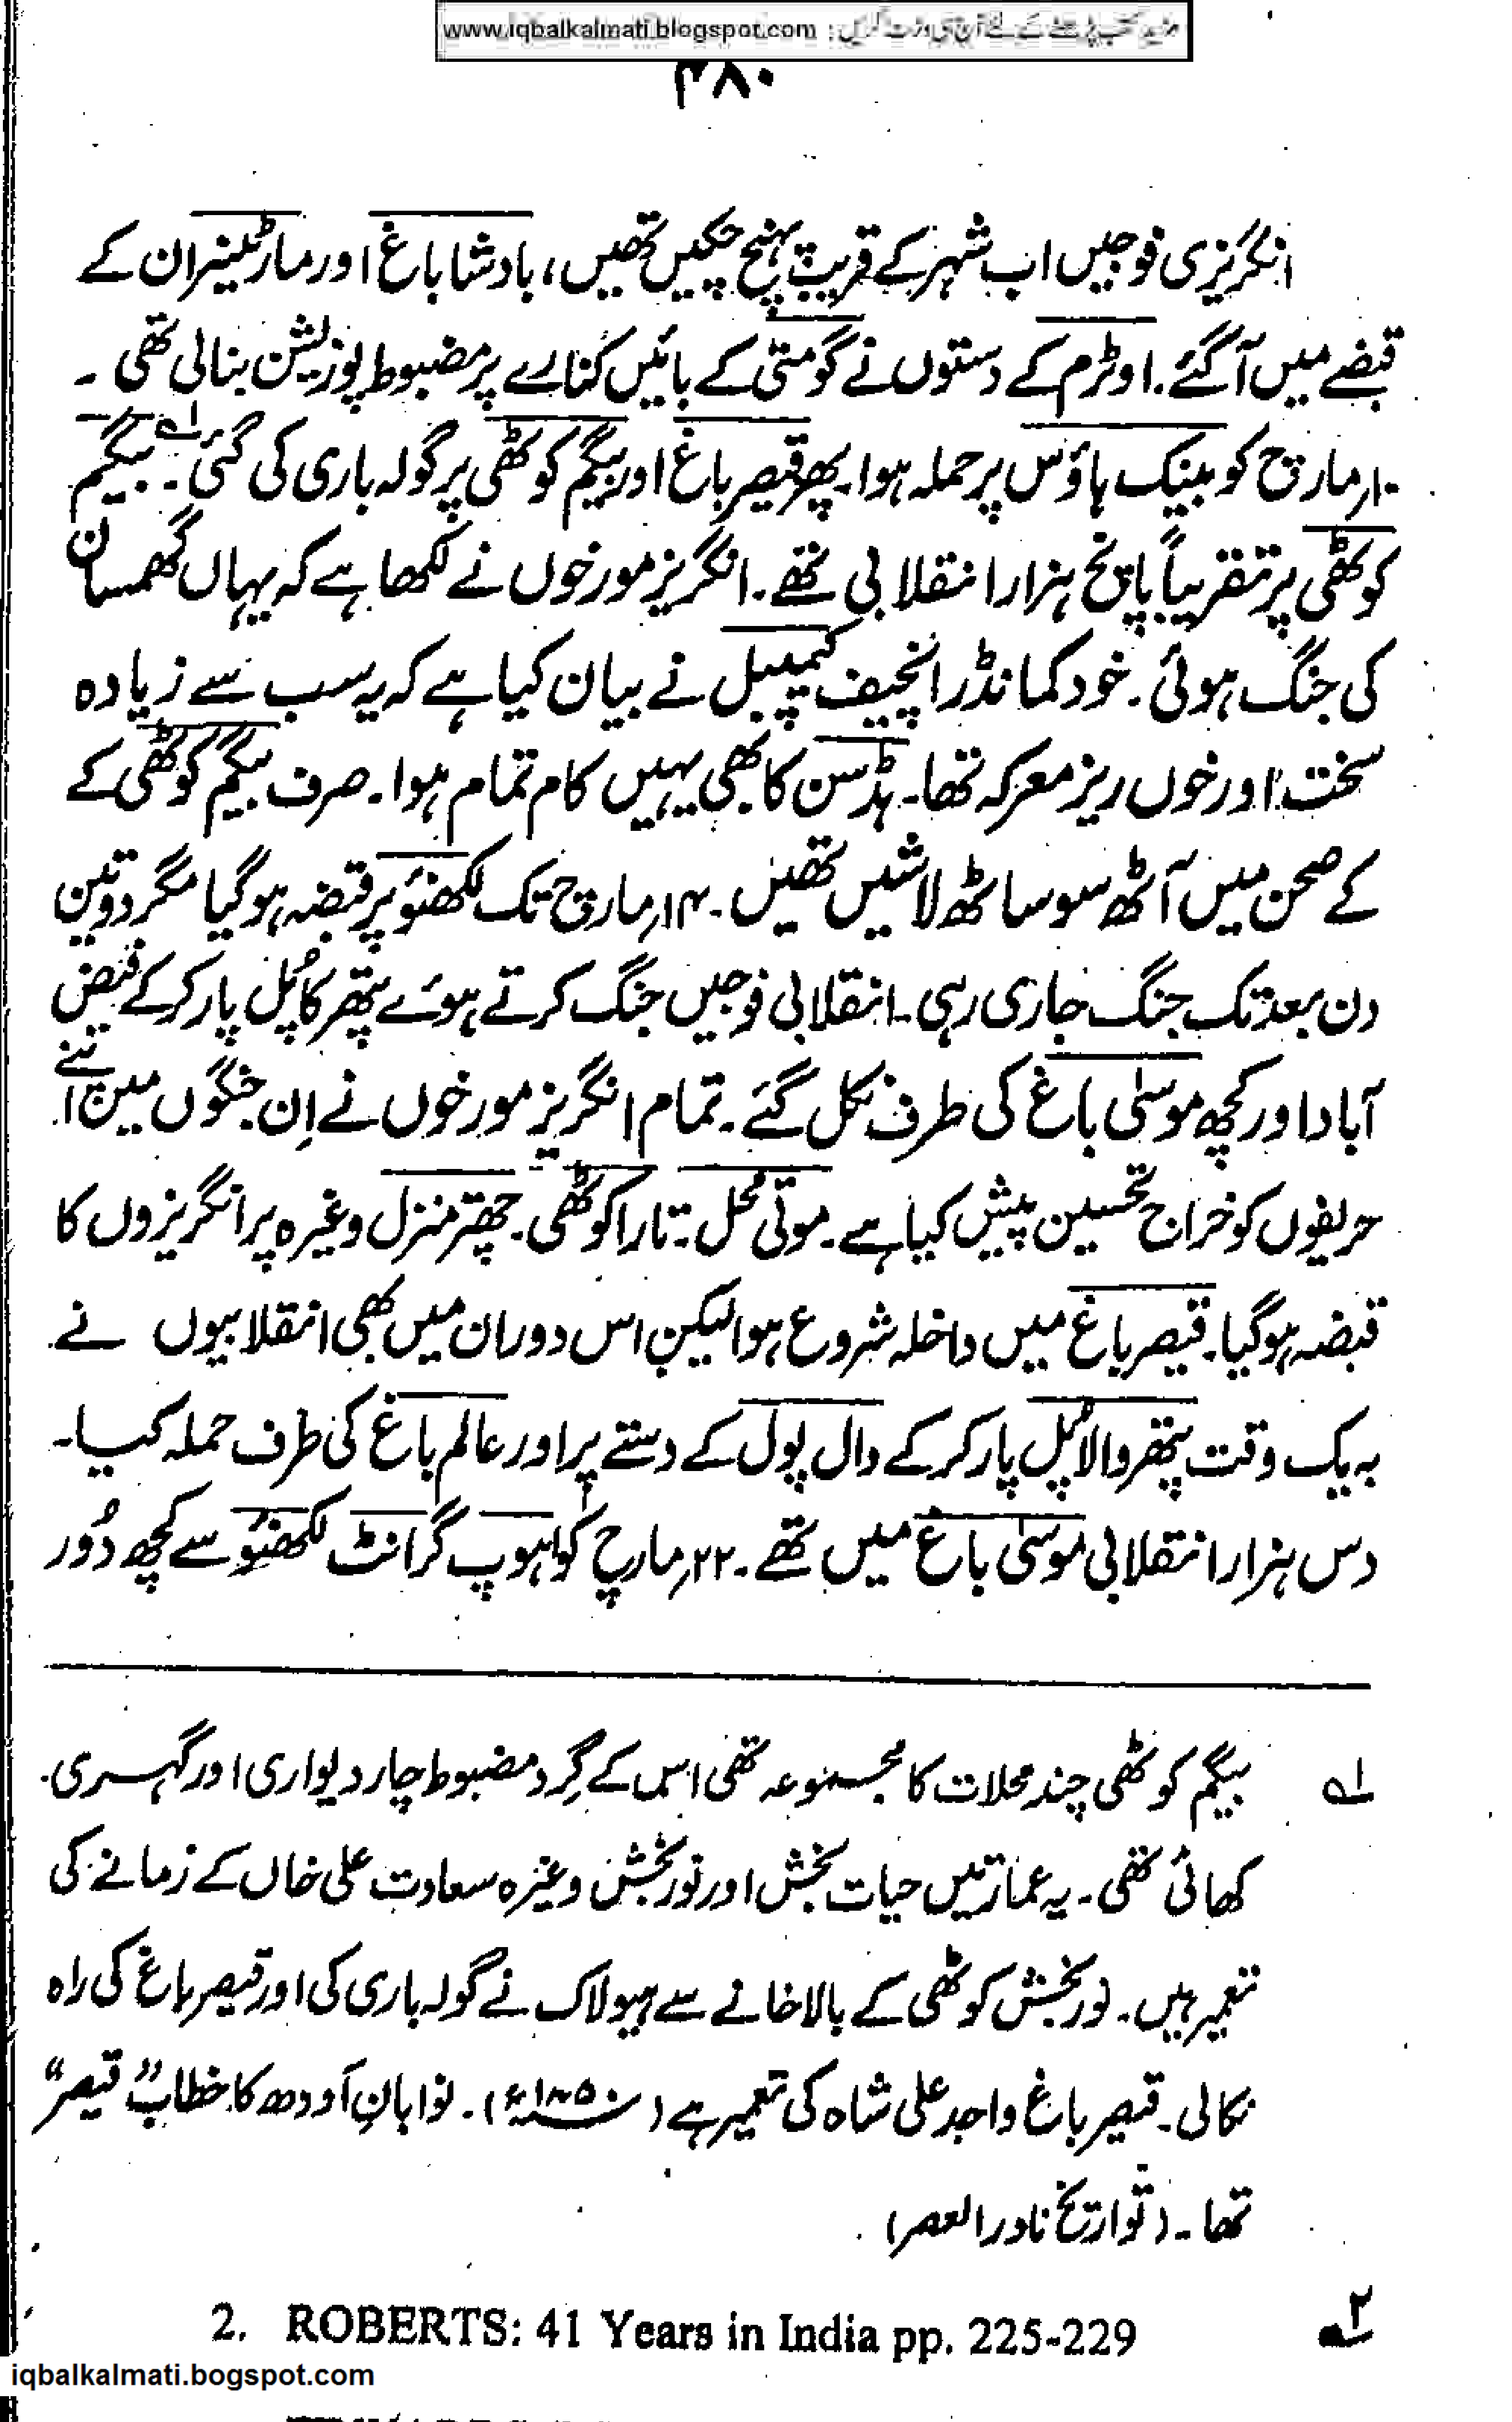 مزید کتب پڑھنے کے لئے آج ہی وزٹ کریں : www.iqbalkalmati.blogspot.com
۳۸۰
انگریزی فوجیں اب شہر کے قریب پہنچ چکیں تھیں، بادشا باغ اور مارٹینیر ان کے
قبضے میں آگئے۔ اوٹرم کے دستوں نے گومتی کے بائیں کنارے پر مضبوط پوزیشن بنالی تھی ۔
۱۰؍مارچ کو بینک ہاؤس پر حملہ ہوا۔ پھر قیصر باغ اور بیگم کوٹھی پر گولہ باری کی گئی ۔ؔ۱ بیگم
کوٹھی پر تقریباً پانچ ہزار انقلابی تھے ۔ انگریز مورخوں نے لکھا ہے کہ یہاں گھمسان
کی جنگ ہوئی ۔ خود کمانڈر انچیف کیمپبل نے بیان کیا ہے کہ یہ سب سے زیادہ
سخت اور خوں ریز معرکہ تھا۔ ہڈسن کا بھی یہیں کام تمام ہوا ۔ صرف بیگم کوٹھی کے
کے صحن میں آٹھ سو ساٹھ لاشیں تھیں ۔ ۱۴؍مارچ تک لکھنؤ پر قبضہ ہوگیا مگر دو تین
دن بعد تک جنگ جاری رہی ۔ انقلابی فوجیں جنگ کرتے ہوئے پتھر کا پُل پار کرکے فیض
آباد اور کچھ موسیٰ باغ کی طرف نکل گئے ۔ تمام انگریز مورخوں نے اِن جنگوں میں اپنے
حریفوں کو خراج تحسین پیش کیا ہے ۔ موتی محل ۔ تارا کوٹھی ۔ چھتر منزل وغیرہ پر انگریزوں کا
قبضہ ہوگیا ۔ قیصر باغ میں داخلہ شروع ہوا لیکن اس دوران میں بھی انقلابیوں نے
بہ یک وقت پتھر والا پُل پار کرکے وال پول کے دستے پر اور عالم باغ کی طرف حملہ کیا ۔
دس ہزار انقلابی موسیٰ باغ میں تھے ۔ ۲۲؍مارچ کو ہوپ گرانٹ لکھنؤ سے کچھ دُور
؎۱ بیگم کوٹھی چند محلات کا مجموعہ تھی اس کے گِرد مضبوط چار دیواری اور گہری
کھائی تھی ۔ یہ عمارتیں حیات بخش اور نور بخش وغیرہ سعادت علی خاں کے زمانے کی
تعمیر ہیں ۔ نور بخش کوٹھی کے بالا خانے سے ہیولاک نے گولہ باری کی اور قیصر باغ کی راہ
نکالی ۔ قیصر باغ واجد علی شاہ کی تعمیر ہے (۱۸۵۰ء) ۔ نوابانِ اودھ کا خطاب ”قیصر“
تھا ۔ (تواریخ نادر العصر)
؎۲ 2. ROBERTS: 41 Years in India pp. 225-229
iqbalkalmati.bogspot.com